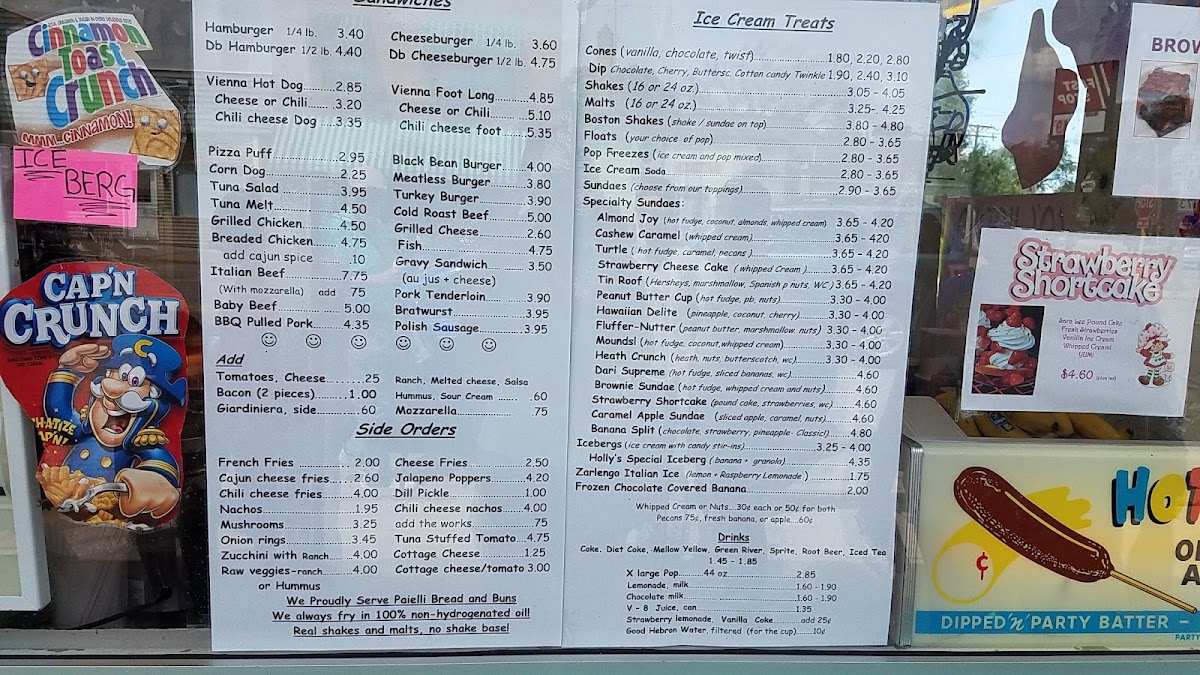 Cinnamon
Toast
Crunch
MMM...CINNAMON!
ICE
BERG
CAP'N
CRUNCH
Sandwiches
Hamburger 1/4 lb. 3.40
Db Hamburger 1/2 lb. 4.40
Vienna Hot Dog.......2.85
Cheese or Chili.....3.20
Chili cheese Dog ....3.35
Pizza Puff.....................2.95
Corn Dog.......................2.25
Tuna Salad ..................3.95
Tuna Melt.....................4.50
Grilled Chicken............4.50
Breaded Chicken...... 4.75
add cajun spice .10
Italian Beef.............7.75
(With mozzarella) add .75
Baby Beef .............. 5.00
BBQ Pulled Pork....... 4.35
Cheeseburger 1/4 lb. 3.60
Db Cheeseburger 1/2 lb. 4.75
Vienna Foot Long.........4.85
Cheese or Chili........5.10
Chili cheese foot......5.35
Black Bean Burger.......4.00
Meatless Burger..........3.80
Turkey Burger............3.90
Cold Roast Beef.........5.00
Grilled Cheese............2.60
Fish..............................4.75
Gravy Sandwich........ 3.50
(au jus + cheese)
Pork Tenderloin.........3.90
Bratwurst...................3.95
Polish Sausage...........3.95
Add
Tomatoes, Cheese........25
Bacon (2 pieces).......1.00
Giardiniera, side.......60
Ranch, Melted cheese, Salsa
Hummus, Sour Cream ....... .60
Mozzarella................ .75
Side Orders
French Fries ............ 2.00
Cajun cheese fries.....2.60
Chili cheese fries......4.00
Nachos.....................1.95
Mushrooms...............3.25
Onion rings..............3.45
Zucchini with Ranch......4.00
Raw veggies-ranch........4.00
or Hummus
Cheese Fries...............2.50
Jalapeno Poppers.........4.20
Dill Pickle....................1.00
Chili cheese nachos.....4.00
add the works...........75
Tuna Stuffed Tomato...4.75
Cottage Cheese...........1.25
Cottage cheese/tomato 3.00
We Proudly Serve Paielli Bread and Buns
We always fry in 100% non-hydrogenated oil!
Real shakes and malts, no shake base!
Ice Cream Treats
Cones (vanilla, chocolate, twist)..................1.80, 2.20, 2.80
Dip Chocolate, Cherry, Buttersc, Cotton candy Twinkle 1.90, 2.40, 3.10
Shakes (16 or 24 oz.)...............................3.05 - 4.05
Malts (16 or 24 oz.)................................3.25- 4.25
Boston Shakes (shake / sundae on top)................3.80 - 4.80
Floats (your choice of pop)..........................2.80 - 3.65
Pop Freezes (ice cream and pop mixed)................2.80 - 3.65
Ice Cream Soda.......................................2.80 - 3.65
Sundaes (choose from our toppings)...................2.90 - 3.65
Specialty Sundaes:
Almond Joy (hot fudge, coconut, almonds, whipped cream) 3.65 - 4.20
Cashew Caramel (whipped cream)......................3.65 - 420
Turtle (hot fudge, caramel, pecans).................3.65 - 4.20
Strawberry Cheese Cake (whipped Cream)..............3.65 - 4.20
Tin Roof (Hersheys, marshmallow, Spanish p nuts, WC)3.65 - 4.20
Peanut Butter Cup (hot fudge, pb, nuts).............3.30 - 4.00
Hawaiian Delite (pineapple, coconut, cherry)........3.30 - 4.00
Fluffer-Nutter (peanut butter, marshmallow. nuts) 3.30 - 4.00
Mounds! (hot fudge, coconut,whipped cream)..........3.30 - 4.00
Heath Crunch (heath, nuts, butterscotch, wc)........3.30 - 4.00
Dari Supreme (hot fudge, sliced bananas, wc)........4.60
Brownie Sundae (hot fudge, whipped cream and nuts)..4.60
Strawberry Shortcake (pound cake, strawberries, wc).4.60
Caramel Apple Sundae (sliced apple, caramel, nuts)..4.60
Banana Split (chocolate, strawberry, pineapple- Classic!)......4.80
Icebergs (ice cream with candy stir-ins)............3.25 - 4.00
Holly's Special Iceberg (banana + granola)..........4.35
Zarlengo Italian Ice (lemon + Raspberry Lemonade)...1.75
Frozen Chocolate Covered Banana.....................2.00
Whipped Cream or Nuts....30¢ each or 50¢ for both
Pecans 75¢, fresh banana, or apple....60¢
Drinks
Coke, Diet Coke, Mellow Yellow, Green River, Sprite, Root Beer, Iced Tea
1.45 - 1.85
X large Pop.........44 oz....................2.85
Lemonade, milk..............................1.60 - 1.90
Chocolate milk..............................1.60 - 1.90
V - 8 Juice, can............................1.35
Strawberry lemonade, Vanilla Coke...........add 25¢
Good Hebron Water, filtered (for the cup).......10¢
BROW
Strawberry
Shortcake
Sara Lee Pound Cake
Fresh Strawberries
Vanilla Ice Cream
Whipped Cream!
YUM!
$4.60 (plus tax)
¢
HOT
O
A
DIPPED 'n' PARTY BATTER -
PARTY